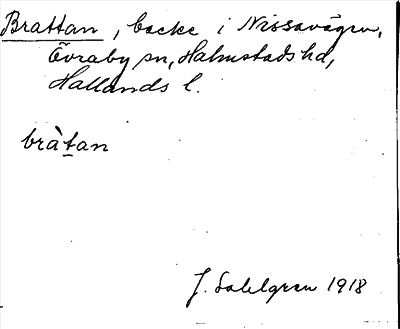 Brattan, backe i Nissavägen,
Övraby sn, Halmstads hd,
Hallands l.
bràtan
J. Sahlgren 1918